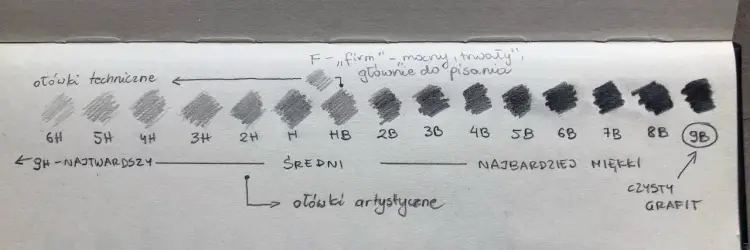 F – „firm" – „mocny, trwały",
głównie do pisania
ołówki techniczne
6H 5H 4H 3H 2H H HB 2B 3B 4B 5B 6B 7B 8B 9B
9H – NAJTWARDSZY ŚREDNI NAJBARDZIEJ MIĘKKI
ołówki artystyczne
CZYSTY
GRAFIT